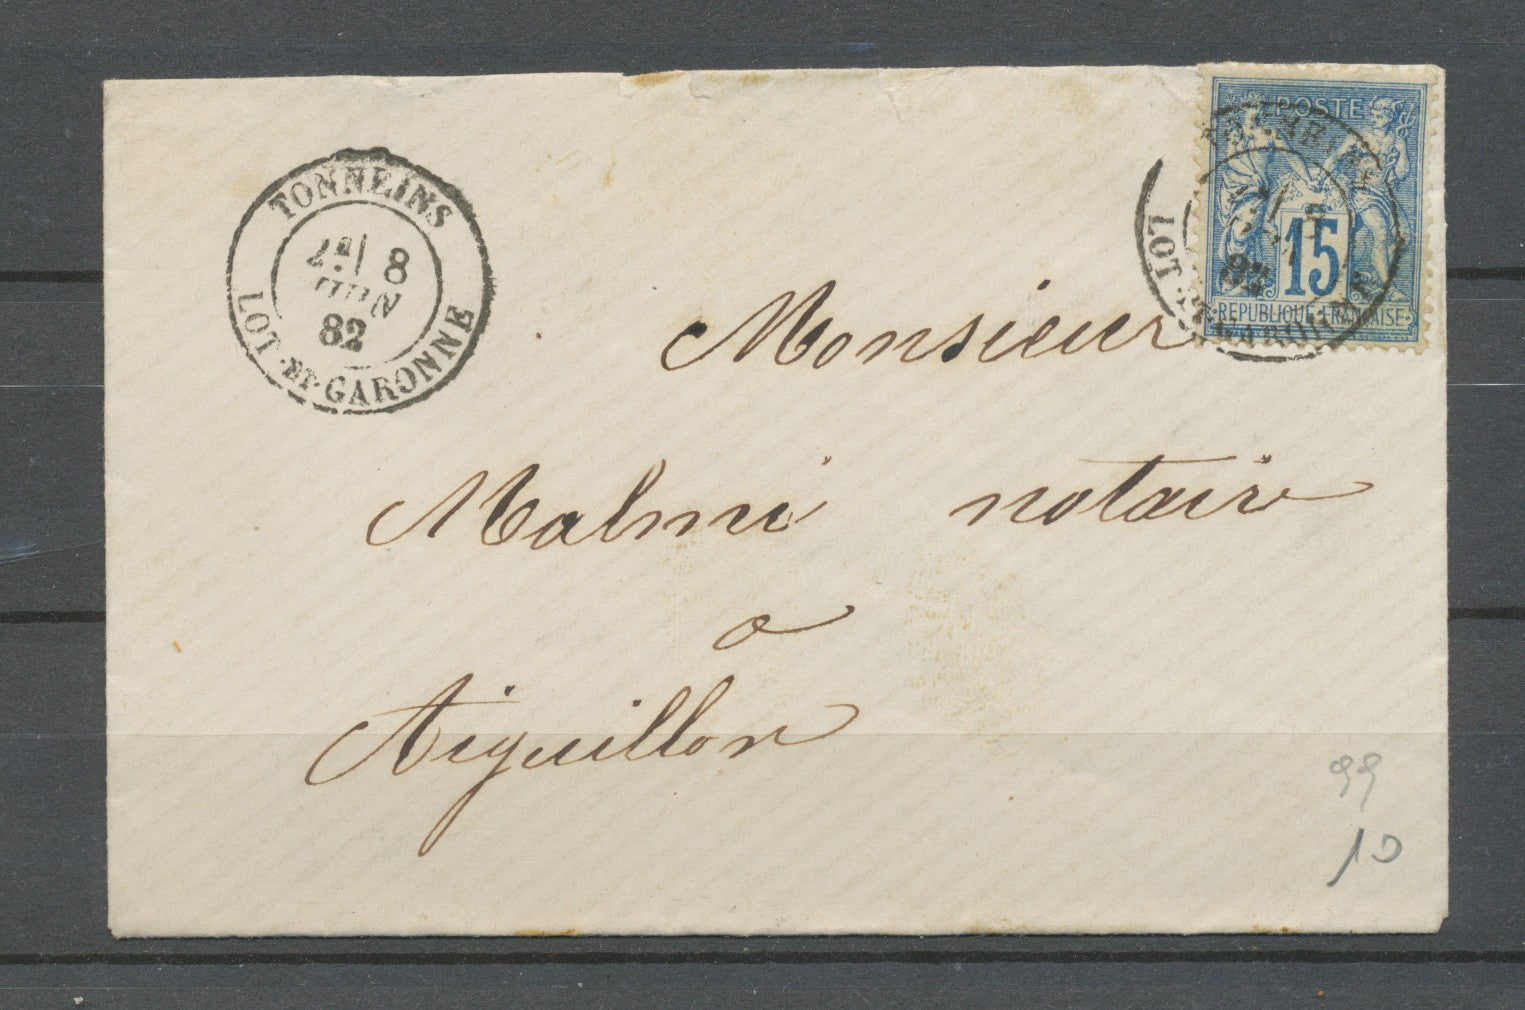 TONNEINS
8
JUIN
82
LOT-ET-GARONNE
POSTE
15
REPUBLIQUE FRANÇAISE
LOT-ET-GARONNE
82
Monsieur
Malmi notaire
a
Aiguillon
99
10